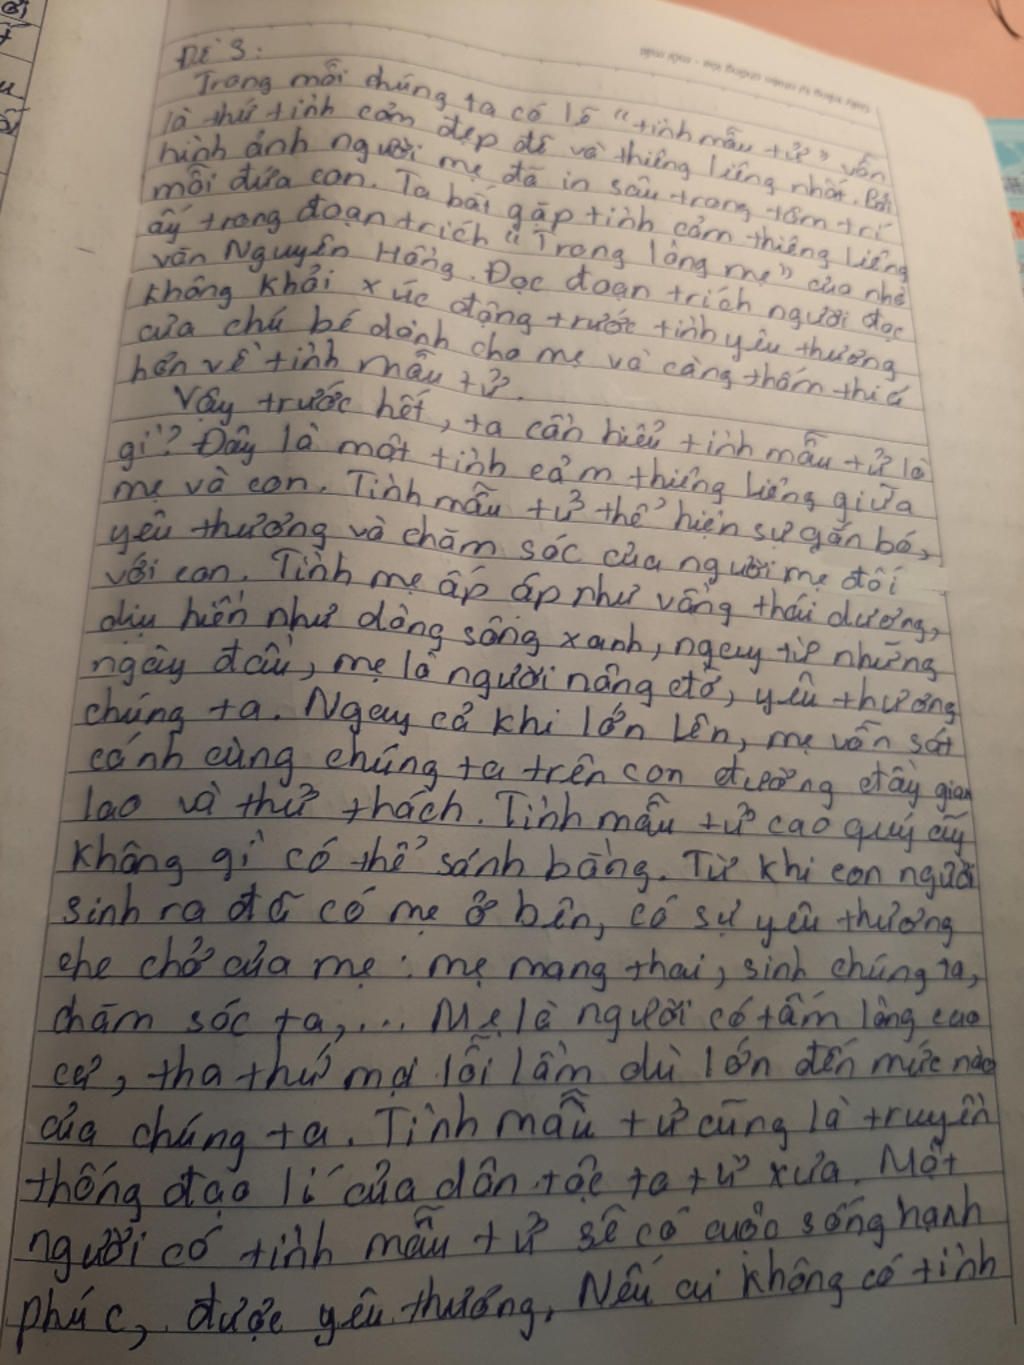 Đề 3:
Trong mỗi chúng ta có lẽ "tình mẫu tử" vẫn
là thứ tình cảm đẹp đẽ và thiêng liêng nhất. Bởi
hình ảnh người mẹ đã in sâu trong tâm trí
mỗi đứa con. Ta bắt gặp tình cảm thiêng liêng
ấy trong đoạn trích "Trong lòng mẹ" của nhà
văn Nguyên Hồng. Đọc đoạn trích người đọc
không khỏi xúc động trước tình yêu thương
của chú bé dành cho mẹ và càng thấm thía
hơn về tình mẫu tử.
Vậy trước hết, ta cần hiểu tình mẫu tử là
gì? Đây là một tình cảm thiêng liêng giữa
mẹ và con. Tình mẫu tử thể hiện sự gắn bó,
yêu thương và chăm sóc của người mẹ đối
với con. Tình mẹ ấp áp như vầng thái dương,
dịu hiền như dòng sông xanh, ngay từ những
ngày đầu, mẹ là người nâng đỡ, yêu thương
chúng ta. Ngay cả khi lớn lên, mẹ vẫn sát
cánh cùng chúng ta trên con đường đầy gian
lao và thử thách. Tình mẫu tử cao quý ấy
không gì có thể sánh bằng. Từ khi con người
sinh ra đã có mẹ ở bên, có sự yêu thương
che chở của mẹ: mẹ mang thai, sinh chúng ta,
chăm sóc ta,... Mẹ là người có tấm lòng cao
cả, tha thứ mọi lỗi lầm dù lớn đến mức nào
của chúng ta. Tình mẫu tử cũng là truyền
thống đạo lí của dân tộc ta từ xưa. Một
người có tình mẫu tử sẽ có cuộc sống hạnh
phúc, được yêu thương. Nếu ai không có tình